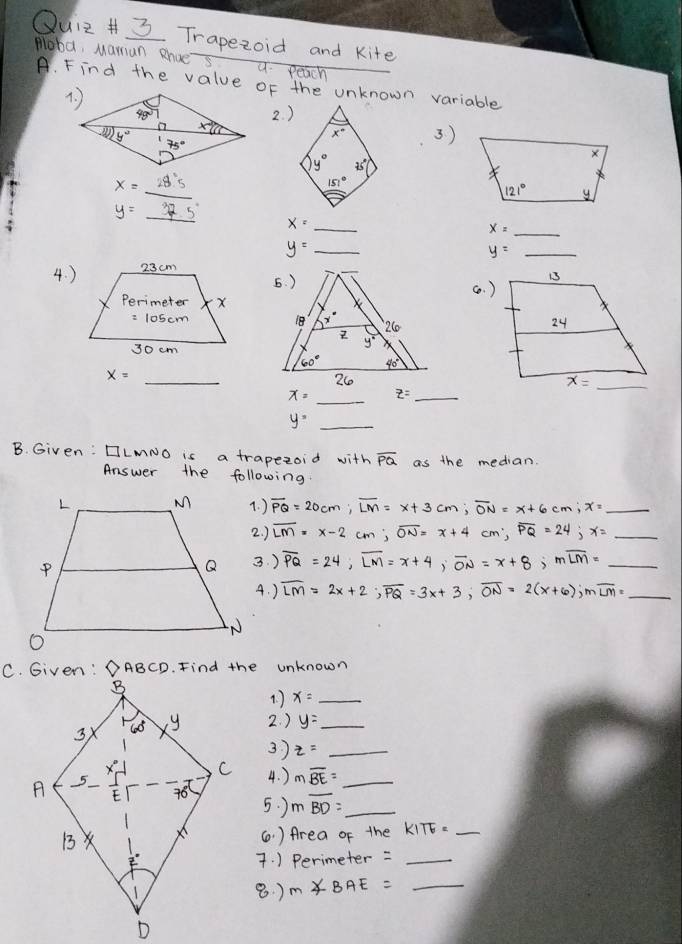 Quiz # 3 Trapezoid and Kite
A. Find the value of the unknown variable
1.)
48°
x°
y°
75°
x = 28°5
y = 37.5°
2.)
x°
y°
75°
151°
x = ___
y = ___
3.)
x
121°
y
x = ___
y = ___
4.)
23 cm
Perimeter
= 105 cm
x
30 cm
x = ___
5.)
18
x°
z
y°
26
60°
40°
26
x = ___ z = ___
y = ___
6.)
13
24
x = ___
B. Given: □LMNO is a trapezoid with PQ as the median.
Answer the following.
L M
P Q
O N
1.) PQ = 20cm ; LM = x+3 cm ; ON = x+6 cm ; x = ___
2.) LM = x-2 cm ; ON = x+4 cm ; PQ = 24 ; x = ___
3.) PQ = 24 ; LM = x+4 ; ON = x+8 ; mLM = ___
4.) LM = 2x+2 ; PQ = 3x+3 ; ON = 2(x+6) ; mLM = ___
C. Given: ◇ABCD. Find the unknown
B
3
60°
y
x°
A 5 E C
70°
13
z°
D
1.) x = ___
2.) y = ___
3.) z = ___
4.) mBE = ___
5.) mBD = ___
6.) Area of the KITE = ___
7.) Perimeter = ___
8.) m∡BAE = ___